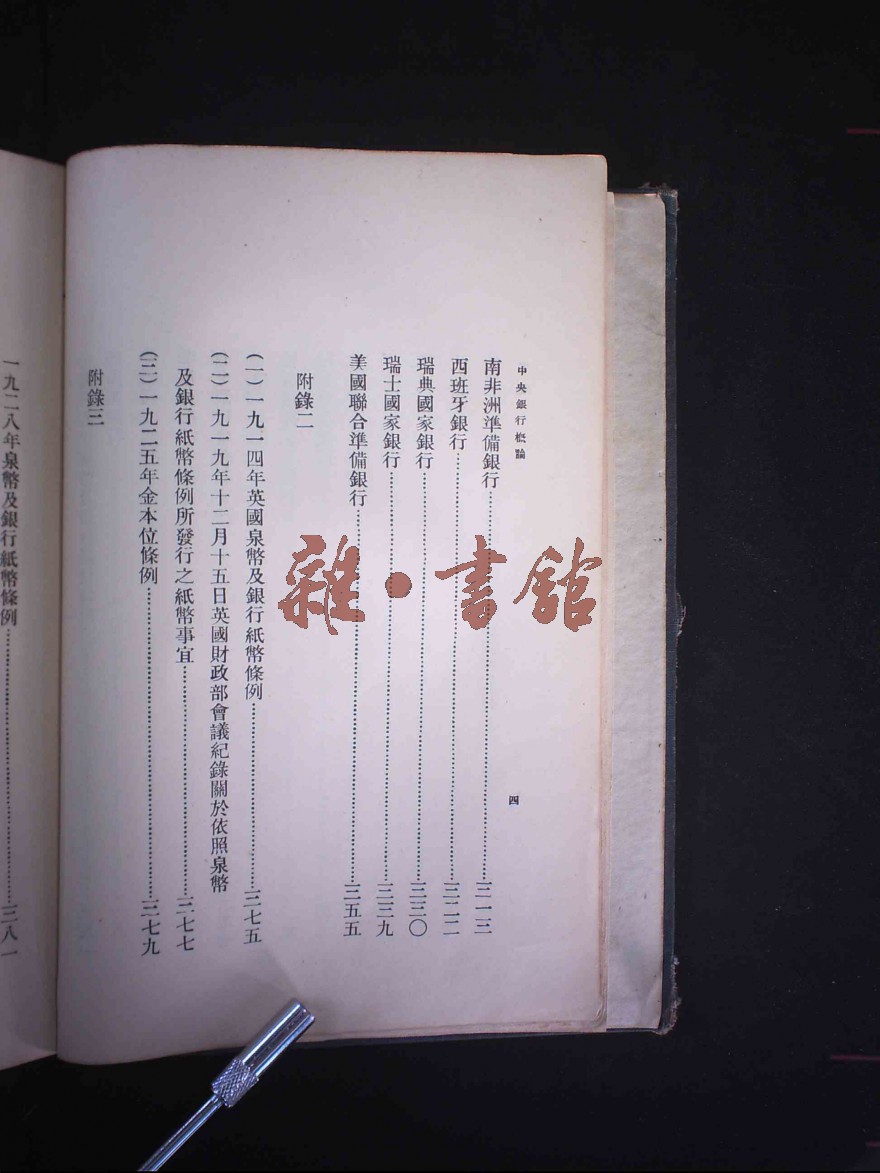 中央銀行概論
四
南非洲準備銀行……三一三
西班牙銀行……三二二
瑞典國家銀行……三三〇
瑞士國家銀行……三三九
美國聯合準備銀行……三五五
附錄二
(一)一九一四年英國泉幣及銀行紙幣條例……三七五
(二)一九一九年十二月十五日英國財政部會議紀錄關於依照泉幣
及銀行紙幣條例所發行之紙幣事宜……三七七
(三)一九二五年金本位條例……三七九
附錄三
一九二八年泉幣及銀行紙幣條例……三八一
雜·書館